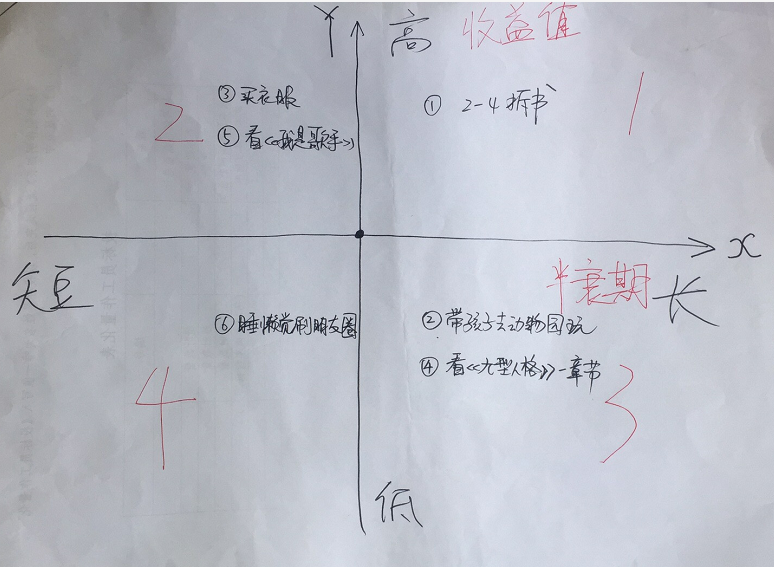 Y 高 收益值
③ 买衣服
2
⑤ 看《我是歌手》
① 2-4 拆书
1
X
短
半衰期 长
⑥ 睡懒觉刷朋友圈
② 带孩子去动物园玩
④ 看《九型人格》一章节
4
3
低